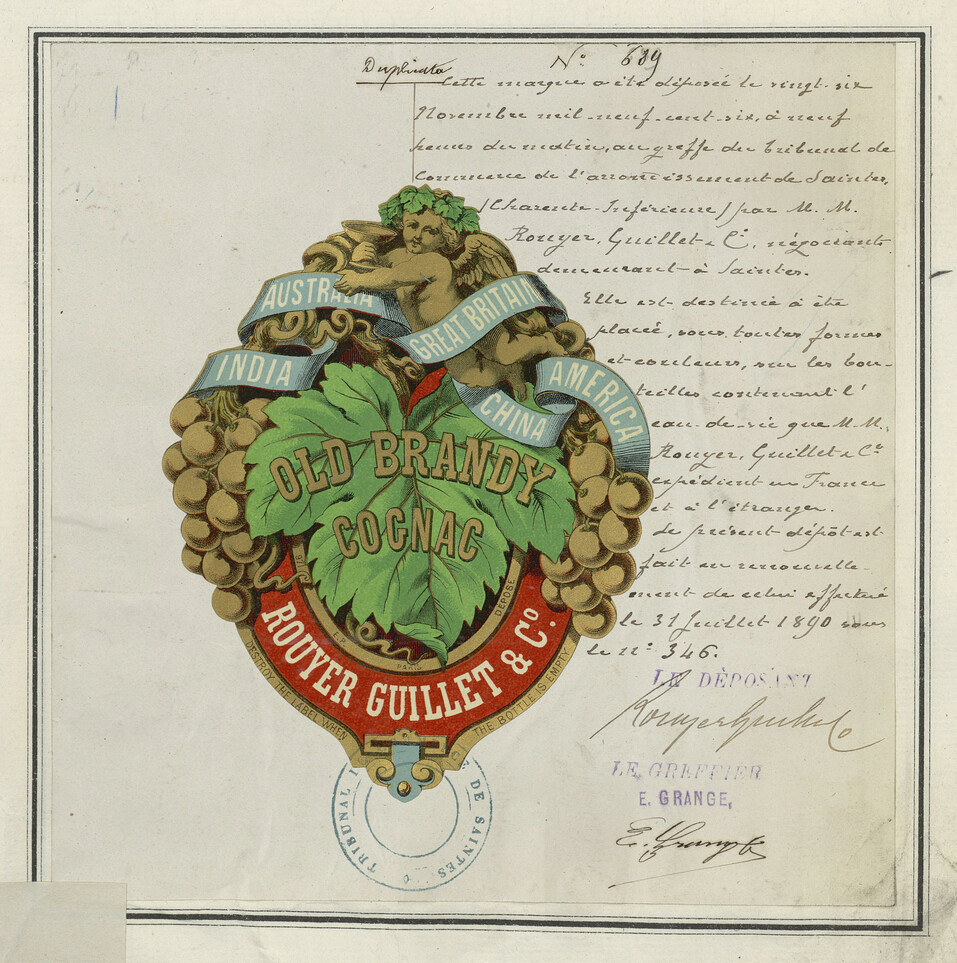 Duplicata
N° 689
Cette marque a été déposée le vingt-six
Novembre mil-neuf-cent-six, à neuf
heures du matin, au greffe du Tribunal de
Commerce de l'arrondissement de Saintes,
(Charente-Inférieure) par M. M.
Rouyer, Guillet & Cie, négociants
demeurant à Saintes.
Elle est destinée à être
placée, sous toutes formes
et couleurs, sur les bou-
teilles contenant l'
eau-de-vie que M. M.
Rouyer, Guillet & Cie
expédient en France
et à l'étranger.
Le présent dépôt est
fait en renouvelle-
ment de celui effectué
le 31 Juillet 1890 sous
le n° 346.
LE DÉPOSANT
Rouyer Guillet & Co
LE GREFFIER
E. GRANGE,
E. Grange
AUSTRALIA
GREAT BRITAIN
INDIA
AMERICA
CHINA
OLD BRANDY
COGNAC
DEPOSÉ
PARIS
ROUYER GUILLET & Cº.
DESTROY THE LABEL WHEN
THE BOTTLE IS EMPTY
TRIBUNAL
DE SAINTES